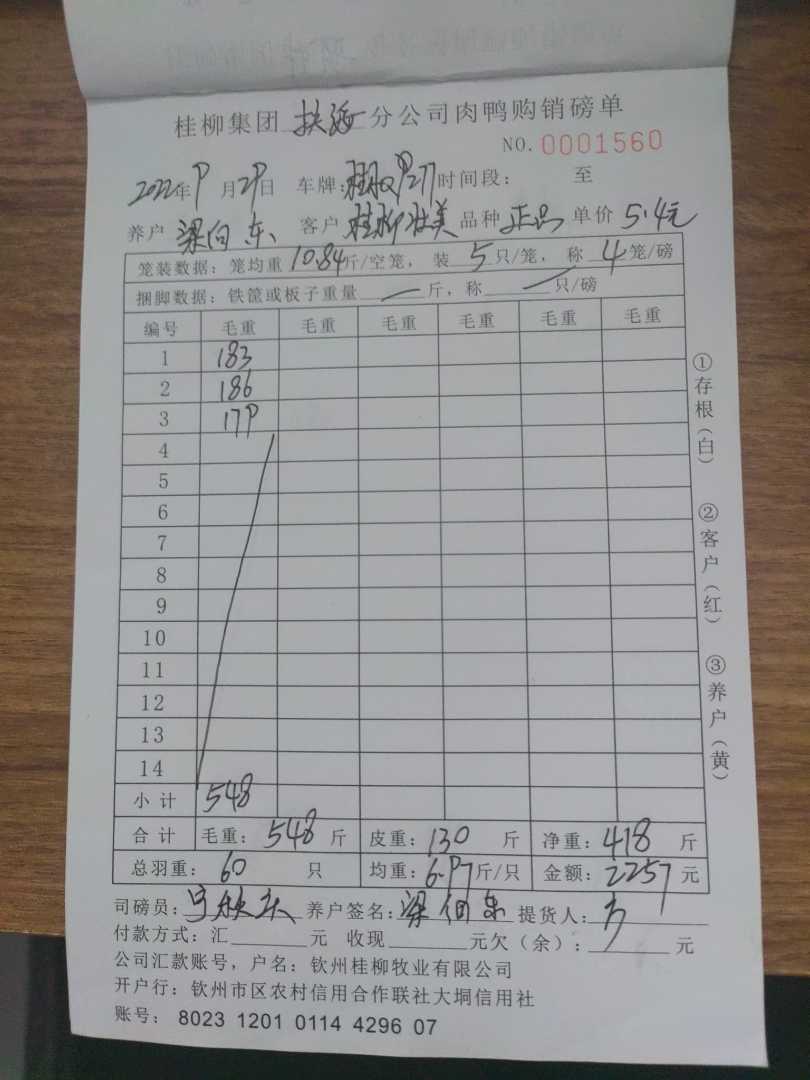 桂柳集团 扶 分公司肉鸭购销磅单
NO. 0001560
2022年9月29日 车牌: 时间段: 至
养户 梁伯东 客户 桂柳壮美 品种 正品 单价 5.4元
笼装数据: 笼均重 10.84斤/空笼, 装 5 只/笼, 称 4 笼/磅
捆脚数据: 铁筐或板子重量 — 斤, 称 — 只/磅
编号 毛重 毛重 毛重 毛重 毛重 毛重
1 183
2 186
3 179
4
5
6
7
8
9
10
11
12
13
14
小计 548
合计 毛重: 548 斤 皮重: 130 斤 净重: 418 斤
总羽重: 60 只 均重: 6.97斤/只 金额: 2257 元
司磅员: 养户签名: 梁伯东 提货人: 方
付款方式: 汇 元 收现 元欠(余): 元
公司汇款账号, 户名: 钦州桂柳牧业有限公司
开户行: 钦州市区农村信用合作联社大垌信用社
账号: 8023 1201 0114 4296 07
①存根(白)
②客户(红)
③养户(黄)